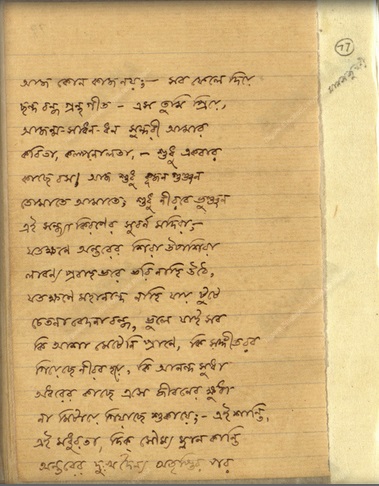 ৭৭
মানসসুন্দরী
আজ কোন কাজ নয়;— সব ফেলে দিয়ে
ছন্দ বন্ধ গ্রন্থ গীত – এস তুমি প্রিয়ে,
আজন্ম-সাধন-ধন সুন্দরী আমার
কবিতা, কল্পনালতা,– শুধু একবার
কাছে বস! আজ শুধু কূজন গুঞ্জন
তোমাতে আমাতে; শুধু নীরবে ভুঞ্জন
এই সন্ধ্যা কিরণের সুবর্ণ মদিরা;–
যতক্ষণে অন্তরের শিরা উপশিরা
লাবণ্য প্রবাহভরে ভরি নাহি উঠে,
যতক্ষণে মহানন্দে নাহি যায় টুটে
চেতনাবেদনাবন্ধ, ভুলে যাই সব
কি আশা মেটেনি প্রাণে, কি সঙ্গীতরব
গিয়েছে নীরব হয়ে, কি আনন্দ সুধা
অধরের কাছে এসে জীবনের ক্ষুধা
না মিটায়ে গিয়াছে শুকায়ে;– এই শান্তি,
এই মধুরতা, দিক্ সৌম্য ম্লান কান্তি
অন্তরের দুঃখ দৈন্য অতৃপ্তির পর